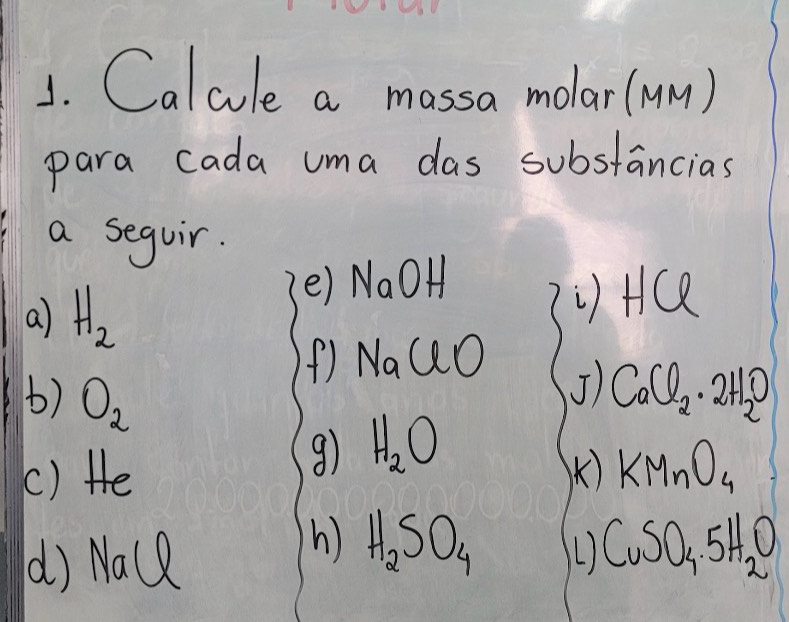 Molar
1. Calcule a massa molar (MM)
para cada uma das substâncias
a seguir.
a) H₂
b) O₂
c) He
d) NaCl
e) NaOH
f) NaClO
g) H₂O
h) H₂SO₄
i) HCl
J) CaCl₂ · 2H₂O
K) KMnO₄
L) CuSO₄ . 5H₂O